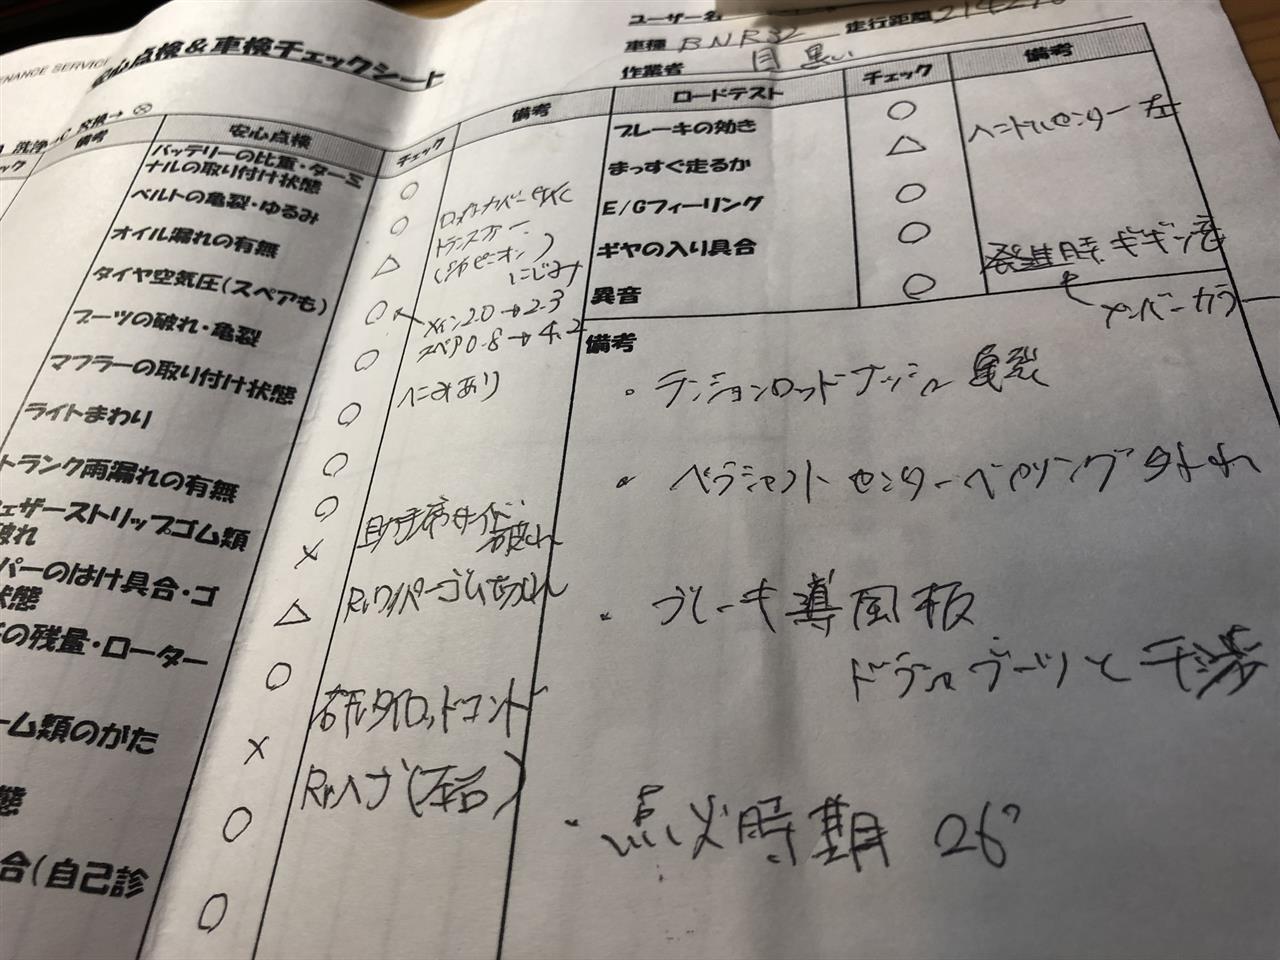 ENANCE SERVICE
安心点検&車検チェックシート
ユーザー名
車種 BNR32 走行距離
作業者
洗浄→C 交換→⊗
ック 備考
安心点検 チェック 備考
バッテリーの比重・ターミ
ナルの取り付け状態 ○
ベルトの亀裂・ゆるみ ○
オイル漏れの有無 △ トランスファー
にじみ
タイヤ空気圧(スペアも) ○ メイン2.0→2.3
スペア0.8→4.2
ブーツの破れ・亀裂 ○
マフラーの取り付け状態 ○ ヘこみあり
ライトまわり ○
トランク雨漏れの有無 ○
ェザーストリップゴム類
破れ × 助手席サイド
破れ
パーのはけ具合・ゴ
状態 △ Rrワイパーゴム
の残量・ローター ○
ーム類のがた × 右左タイロッドエンド
Rrハブ(左右)
態 ○
合(自己診 ○
ロードテスト チェック 備考
ブレーキの効き ○
まっすぐ走るか △ ハンドルセンター 左
E/Gフィーリング ○
ギヤの入り具合 ○
異音 ○ 発進時ギギッ音
メンバーカラ
備考
・テンションロッドブッシュ 亀裂
・ペラシャフト センターベアリング
・ブレーキ導風板
ドラシャブーツと干渉
・点火時期 26°